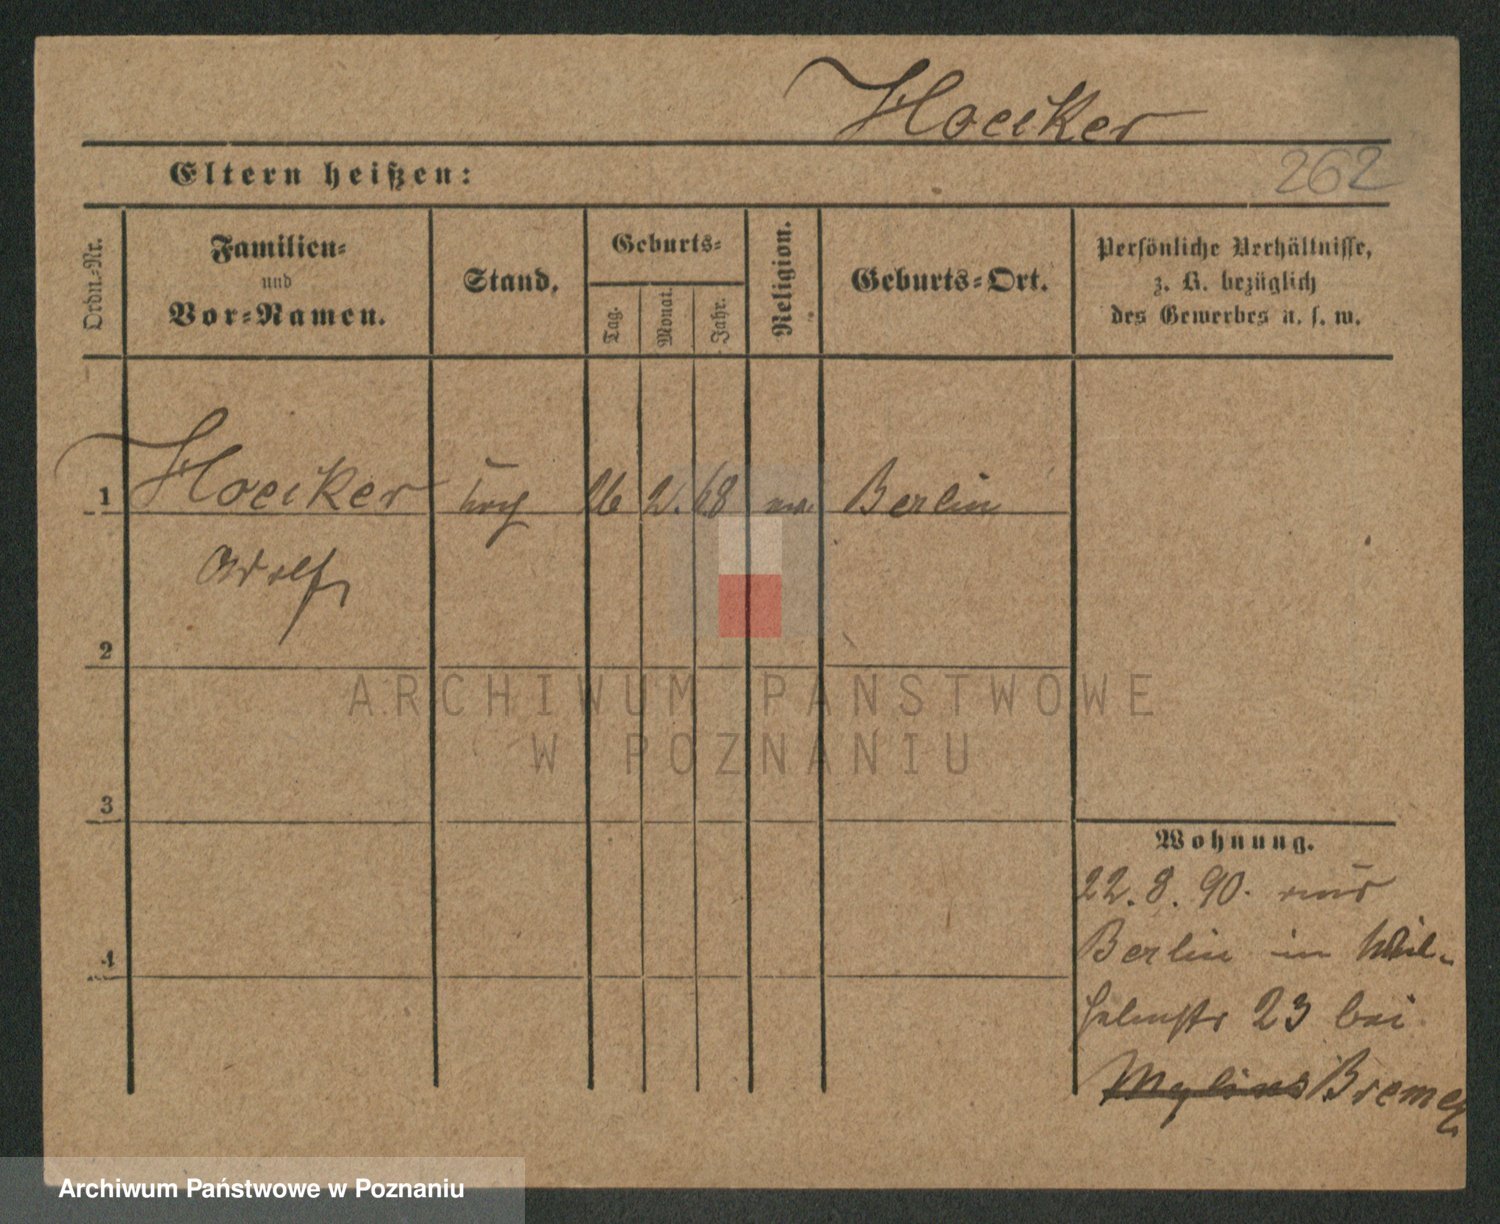 Hoeiker
262
Eltern heißen:
Ordn.-Nr.
Familien-
und
Vor-Namen.
Stand.
Geburts-
Tag.
Monat.
Jahr.
Religion.
Geburts-Ort.
Persönliche Verhältnisse,
z. B. bezüglich
des Gewerbes u. s. w.
1 Hoeiker 26 2. 68 Berlin
Adolf
2
3
4
ARCHIWUM PAŃSTWOWE
W POZNANIU
Wohnung.
22. 8. 90. aus
Berlin in Wil-
helmstr 23 bei
Mylius Bremer
Archiwum Państwowe w Poznaniu